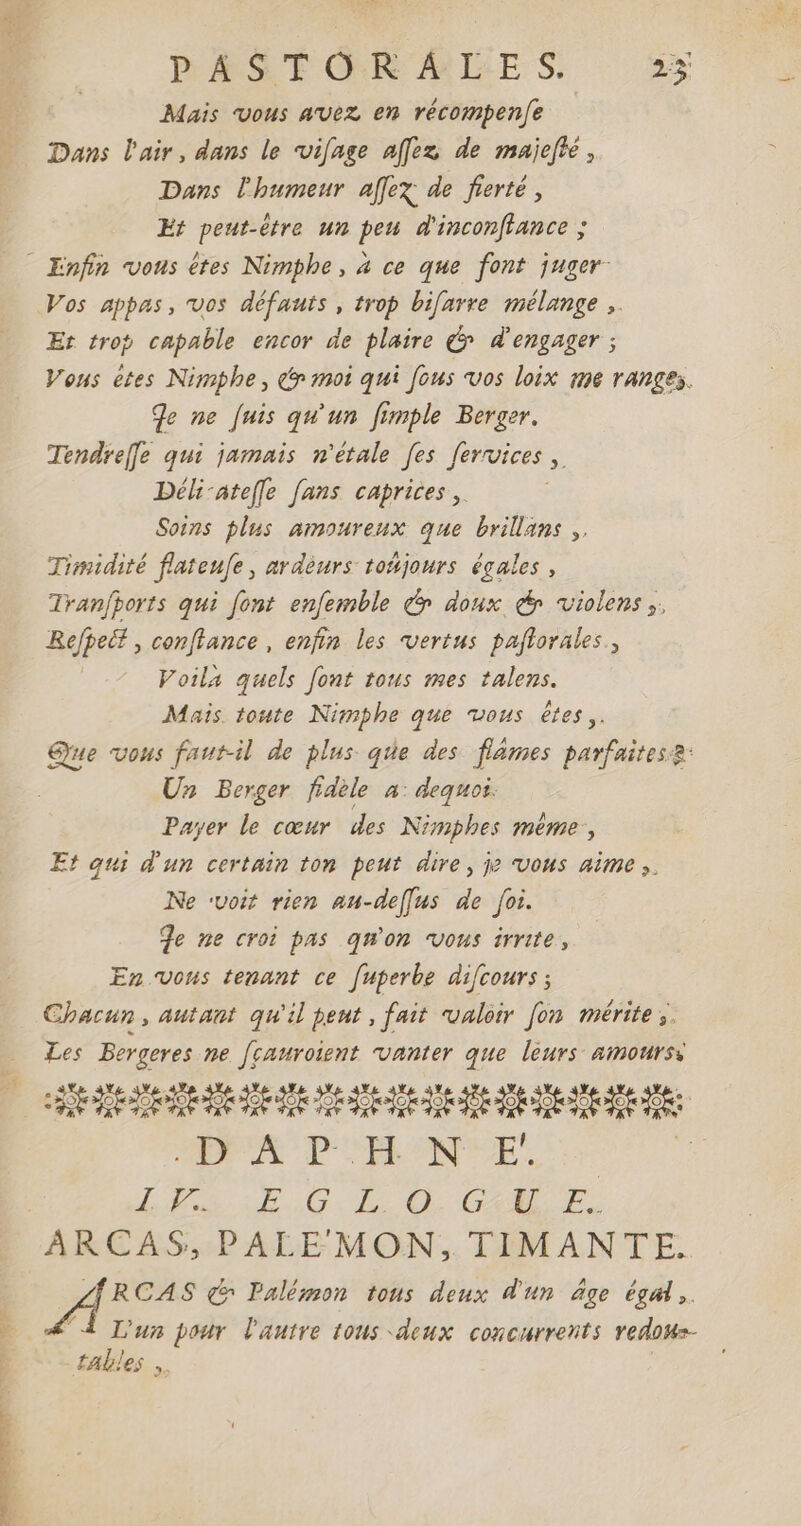 PASTORALES. 23
Mais vous avez en récompenſe
Dans l'air, dans le viſage aſſez de majeſté,
Dans l'humeur aſſez de fierté,
Et peut-être un peu d'inconſtance ;
Enfin vous êtes Nimphe, à ce que font juger
Vos appas, vos défauts, trop biſarre mélange,
Et trop capable encor de plaire & d'engager ;
Vous êtes Nimphe, & moi qui ſous vos loix me ranges.
Je ne ſuis qu'un ſimple Berger.
Tendreſſe qui jamais n'étale ſes ſervices,
Déli-ateſſe ſans caprices,
Soins plus amoureux que brillans,
Timidité flateuſe, ardeurs toûjours égales,
Tranſports qui ſont enſemble & doux & violens,
Reſpect, conſtance, enfin les vertus paſtorales,
Voilà quels ſont tous mes talens.
Mais toute Nimphe que vous êtes,
Que vous faut-il de plus que des flâmes parfaites?
Un Berger fidèle a dequoi
Payer le cœur des Nimphes même,
Et qui d'un certain ton peut dire, je vous aime,
Ne voit rien au-deſſus de ſoi.
Je ne croi pas qu'on vous irrite,
En vous tenant ce ſuperbe diſcours ;
Chacun, autant qu'il peut, fait valoir ſon mérite ;
Les Bergeres ne ſçauroient vanter que leurs amours.
DAPHNE'.
IV. EGLOGUE.
ARCAS, PALE'MON, TIMANTE.
ARCAS & Palémon tous deux d'un âge égal,
L'un pour l'autre tous deux concurrents redou-
tables,